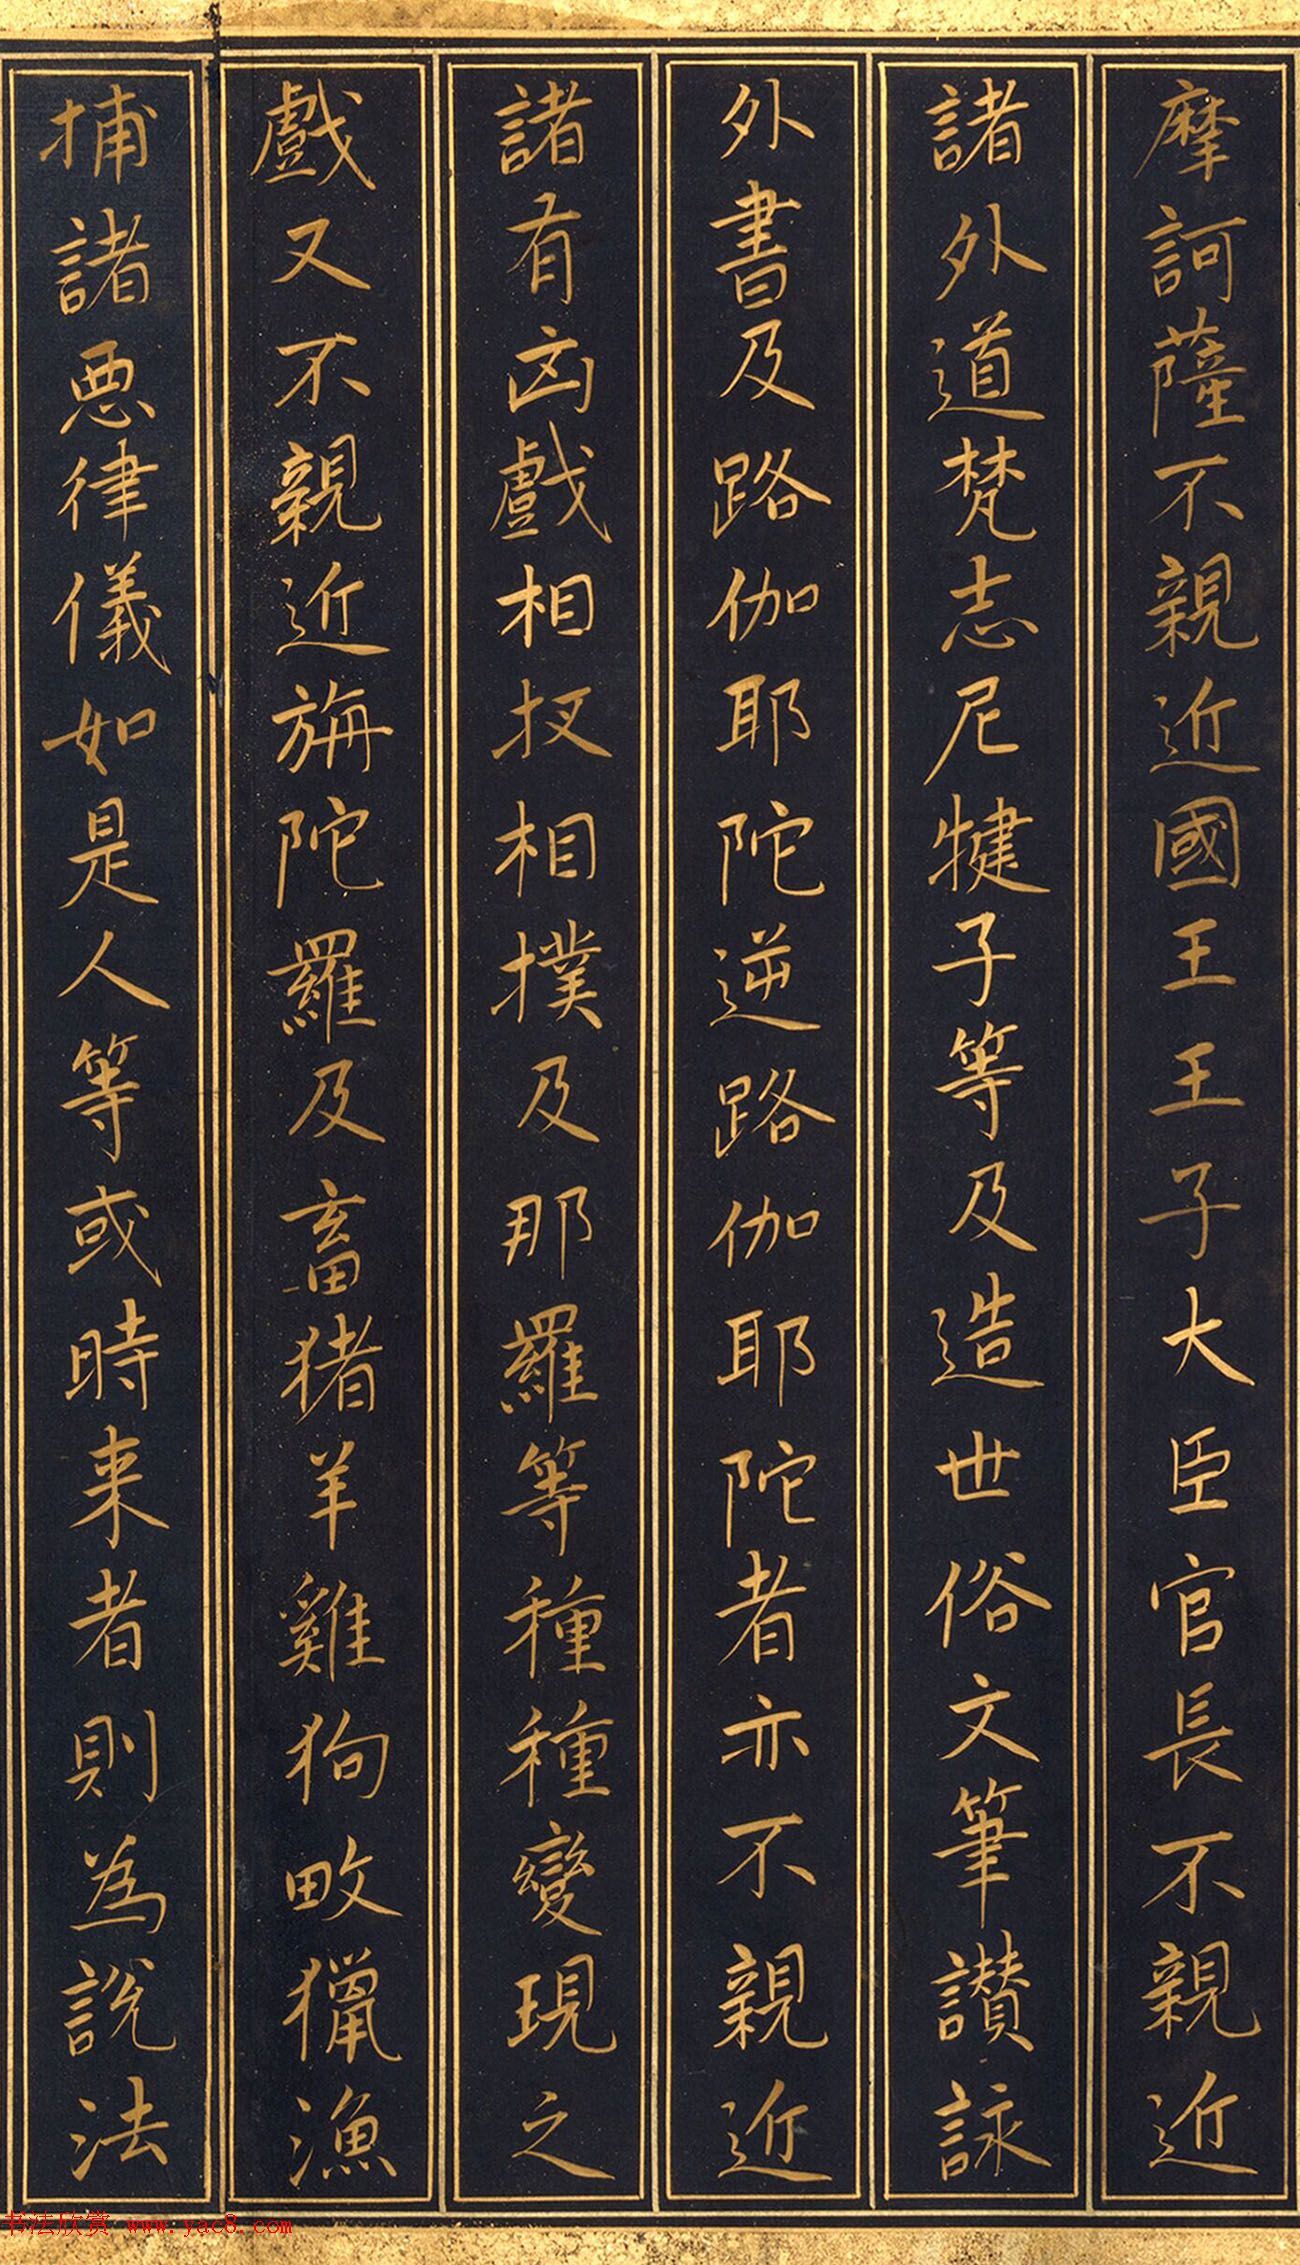 摩訶薩不親近國王王子大臣官長不親近
諸外道梵志尼犍子等及造世俗文筆讃詠
外書及路伽耶陀逆路伽耶陀者亦不親近
諸有凶戲相扠相撲及那羅等種種變現之
戲又不親近旃陀羅及畜猪羊雞狗畋獵漁
捕諸惡律儀如是人等或時来者則為說法
书法欣赏 www.yac8.com